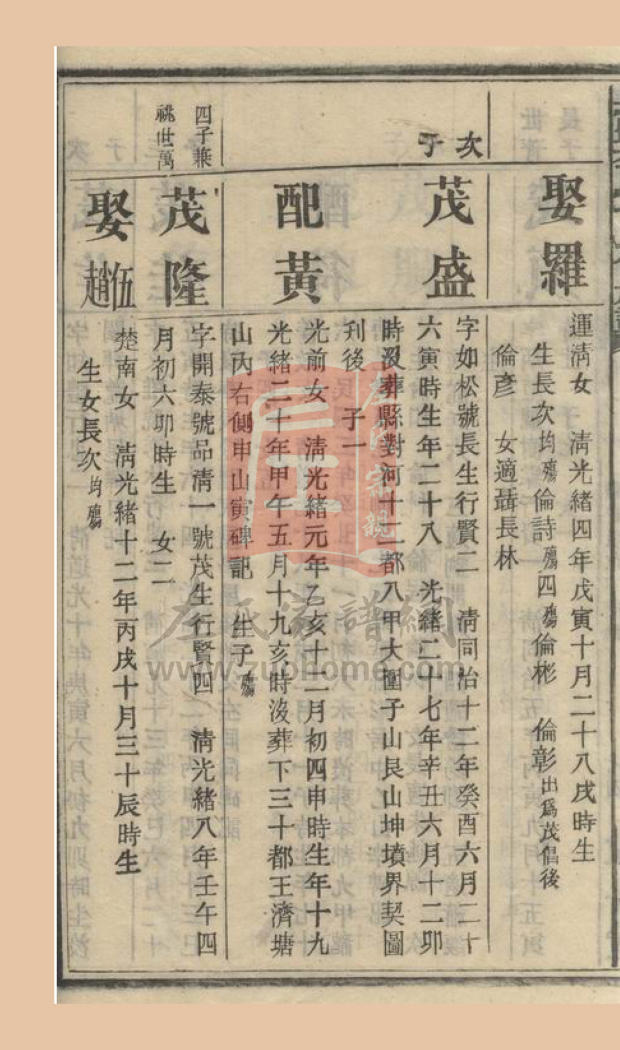 娶羅
運淸女　淸光緒四年戊寅十月二十八戌時生
生長次均殤倫詩殤四殤倫彬　倫彰出爲茂倡後
倫彥　女適聶長林
次子
茂盛
字如松號長生行賢二　淸同治十二年癸酉六月二十
六寅時生年二十八　光緒二十七年辛丑六月十二卯
時沒葬縣對河十二都八甲大圍子山艮山坤墳界契圖
刋後　子一
配黃
光前女　淸光緒元年乙亥十二月初四申時生年十九
光緒二十年甲午五月十九亥時沒葬下三十都王濟塘
山內右側申山寅碑記　生子殤
四子兼
祧世萬
茂隆
字開泰號品淸一號茂生行賢四　淸光緒八年壬午四
月初六卯時生　女二
娶伍趙
楚南女　淸光緒十二年丙戌十月三十辰時生
生女長次均殤
左氏家譜網
www.zuohome.com